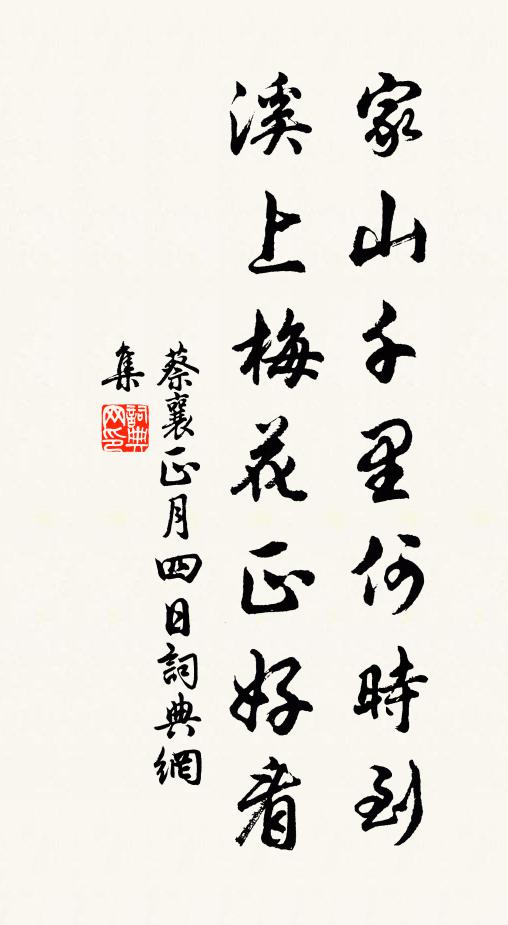 家山千里何時到
溪上梅花正好看
蔡襄正月四日詞典網
集
詞典網印